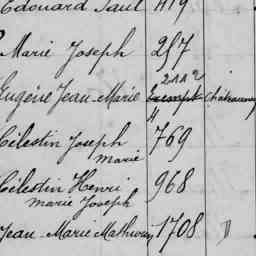 Edouard Paul 419
Marie Joseph 257
Eugène Jean-Marie 211 2
Exempt
Célestin Joseph Marie 769
Célestin Henri marie Joseph 968
Jean Marie Mathurin 1708 D